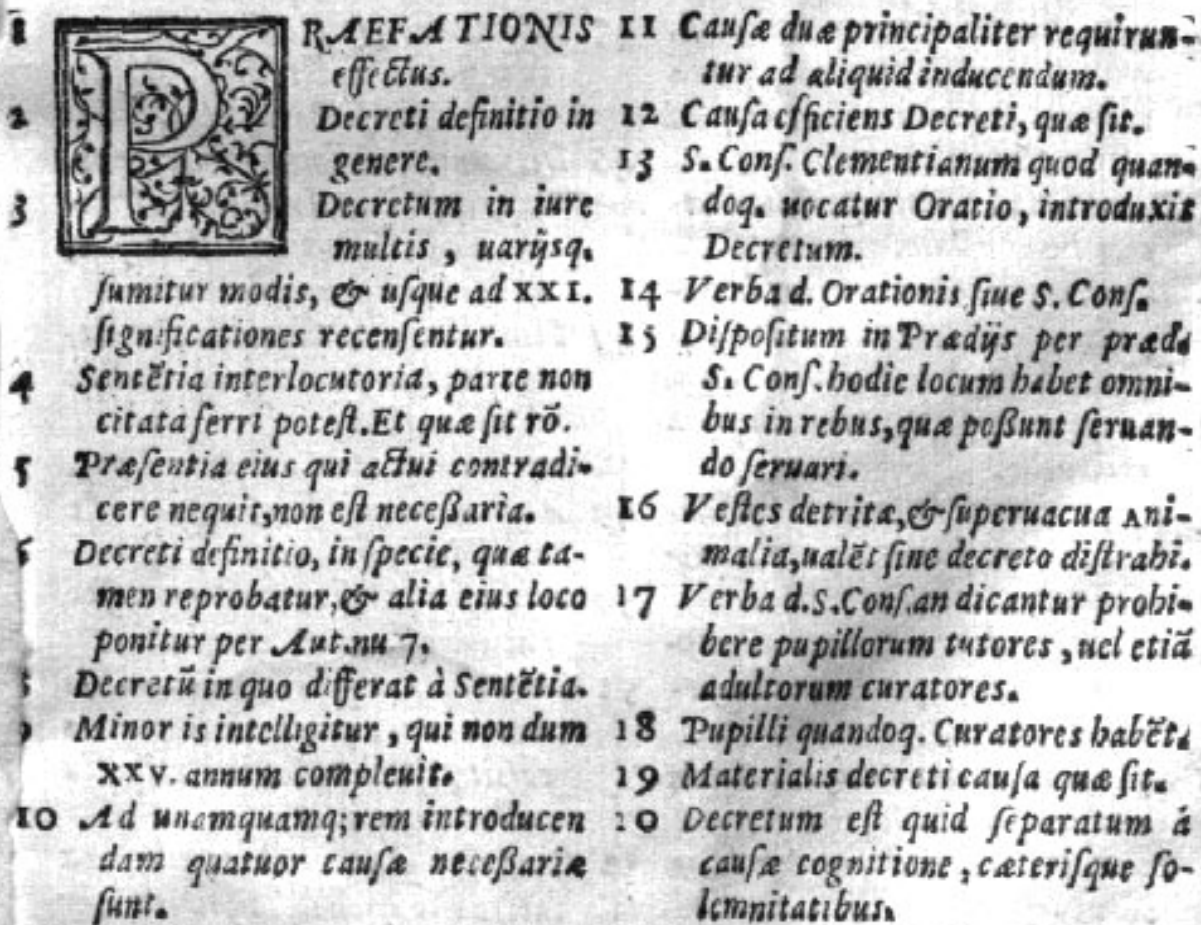 1 PRAEFATIONIS
effectus.
2 Decreti definitio in
genere.
3 Decretum in iure
multis, uarijsq.
sumitur modis, & usque ad XXI.
significationes recensentur.
4 Sentẽtia interlocutoria, parte non
citata ferri potest. Et quæ sit rõ.
5 Præsentia eius qui actui contradi-
cere nequit, non est necessaria.
6 Decreti definitio, in specie, quæ ta-
men reprobatur, & alia eius loco
ponitur per Aut.nu 7.
Decretũ in quo differat à Sentẽtia.
Minor is intelligitur, qui non dum
XXV. annum compleuit.
10 Ad unamquamq; rem introducen
dam quatuor causæ necessariæ
sunt.
11 Causæ duæ principaliter requirun-
tur ad aliquid inducendum.
12 Causa efficiens Decreti, quæ sit.
13 S. Cons. Clementianum quod quan-
doq. uocatur Oratio, introduxit
Decretum.
14 Verba d. Orationis siue S. Cons.
15 Dispositum in Prædijs per præd.
S. Cons. hodie locum habet omni-
bus in rebus, quæ possunt seruan-
do seruari.
16 Vestes detritæ, & superuacua Ani-
malia, ualẽt sine decreto distrahi.
17 Verba d. S. Cons. an dicantur prohi-
bere pupillorum tutores, uel etiã
adultorum curatores.
18 Pupilli quandoq. Curatores habẽt.
19 Materialis decreti causa quæ sit.
20 Decretum est quid separatum á
causæ cognitione, cæterisque so-
lemnitatibus.